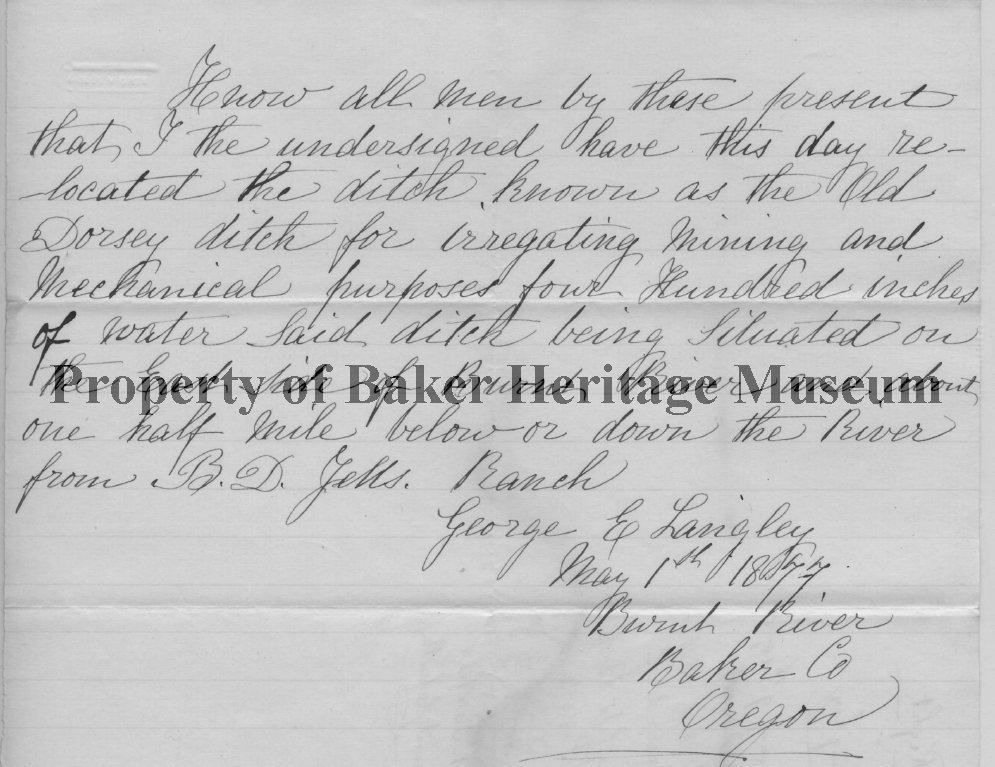 Know all men by these present
that I the undersigned have this day re-
-located the ditch known as the Old
Dorsey ditch for irregating Mining and
Mechanical purposes four Hundred inches
of water Said ditch being Situated on
the East side of Burnt River and about
Property of Baker Heritage Museum
one half Mile below or down the River
from B. D. Ranch
George E Langley
May 1th 1877
Burnt River
Baker Co
Oregon